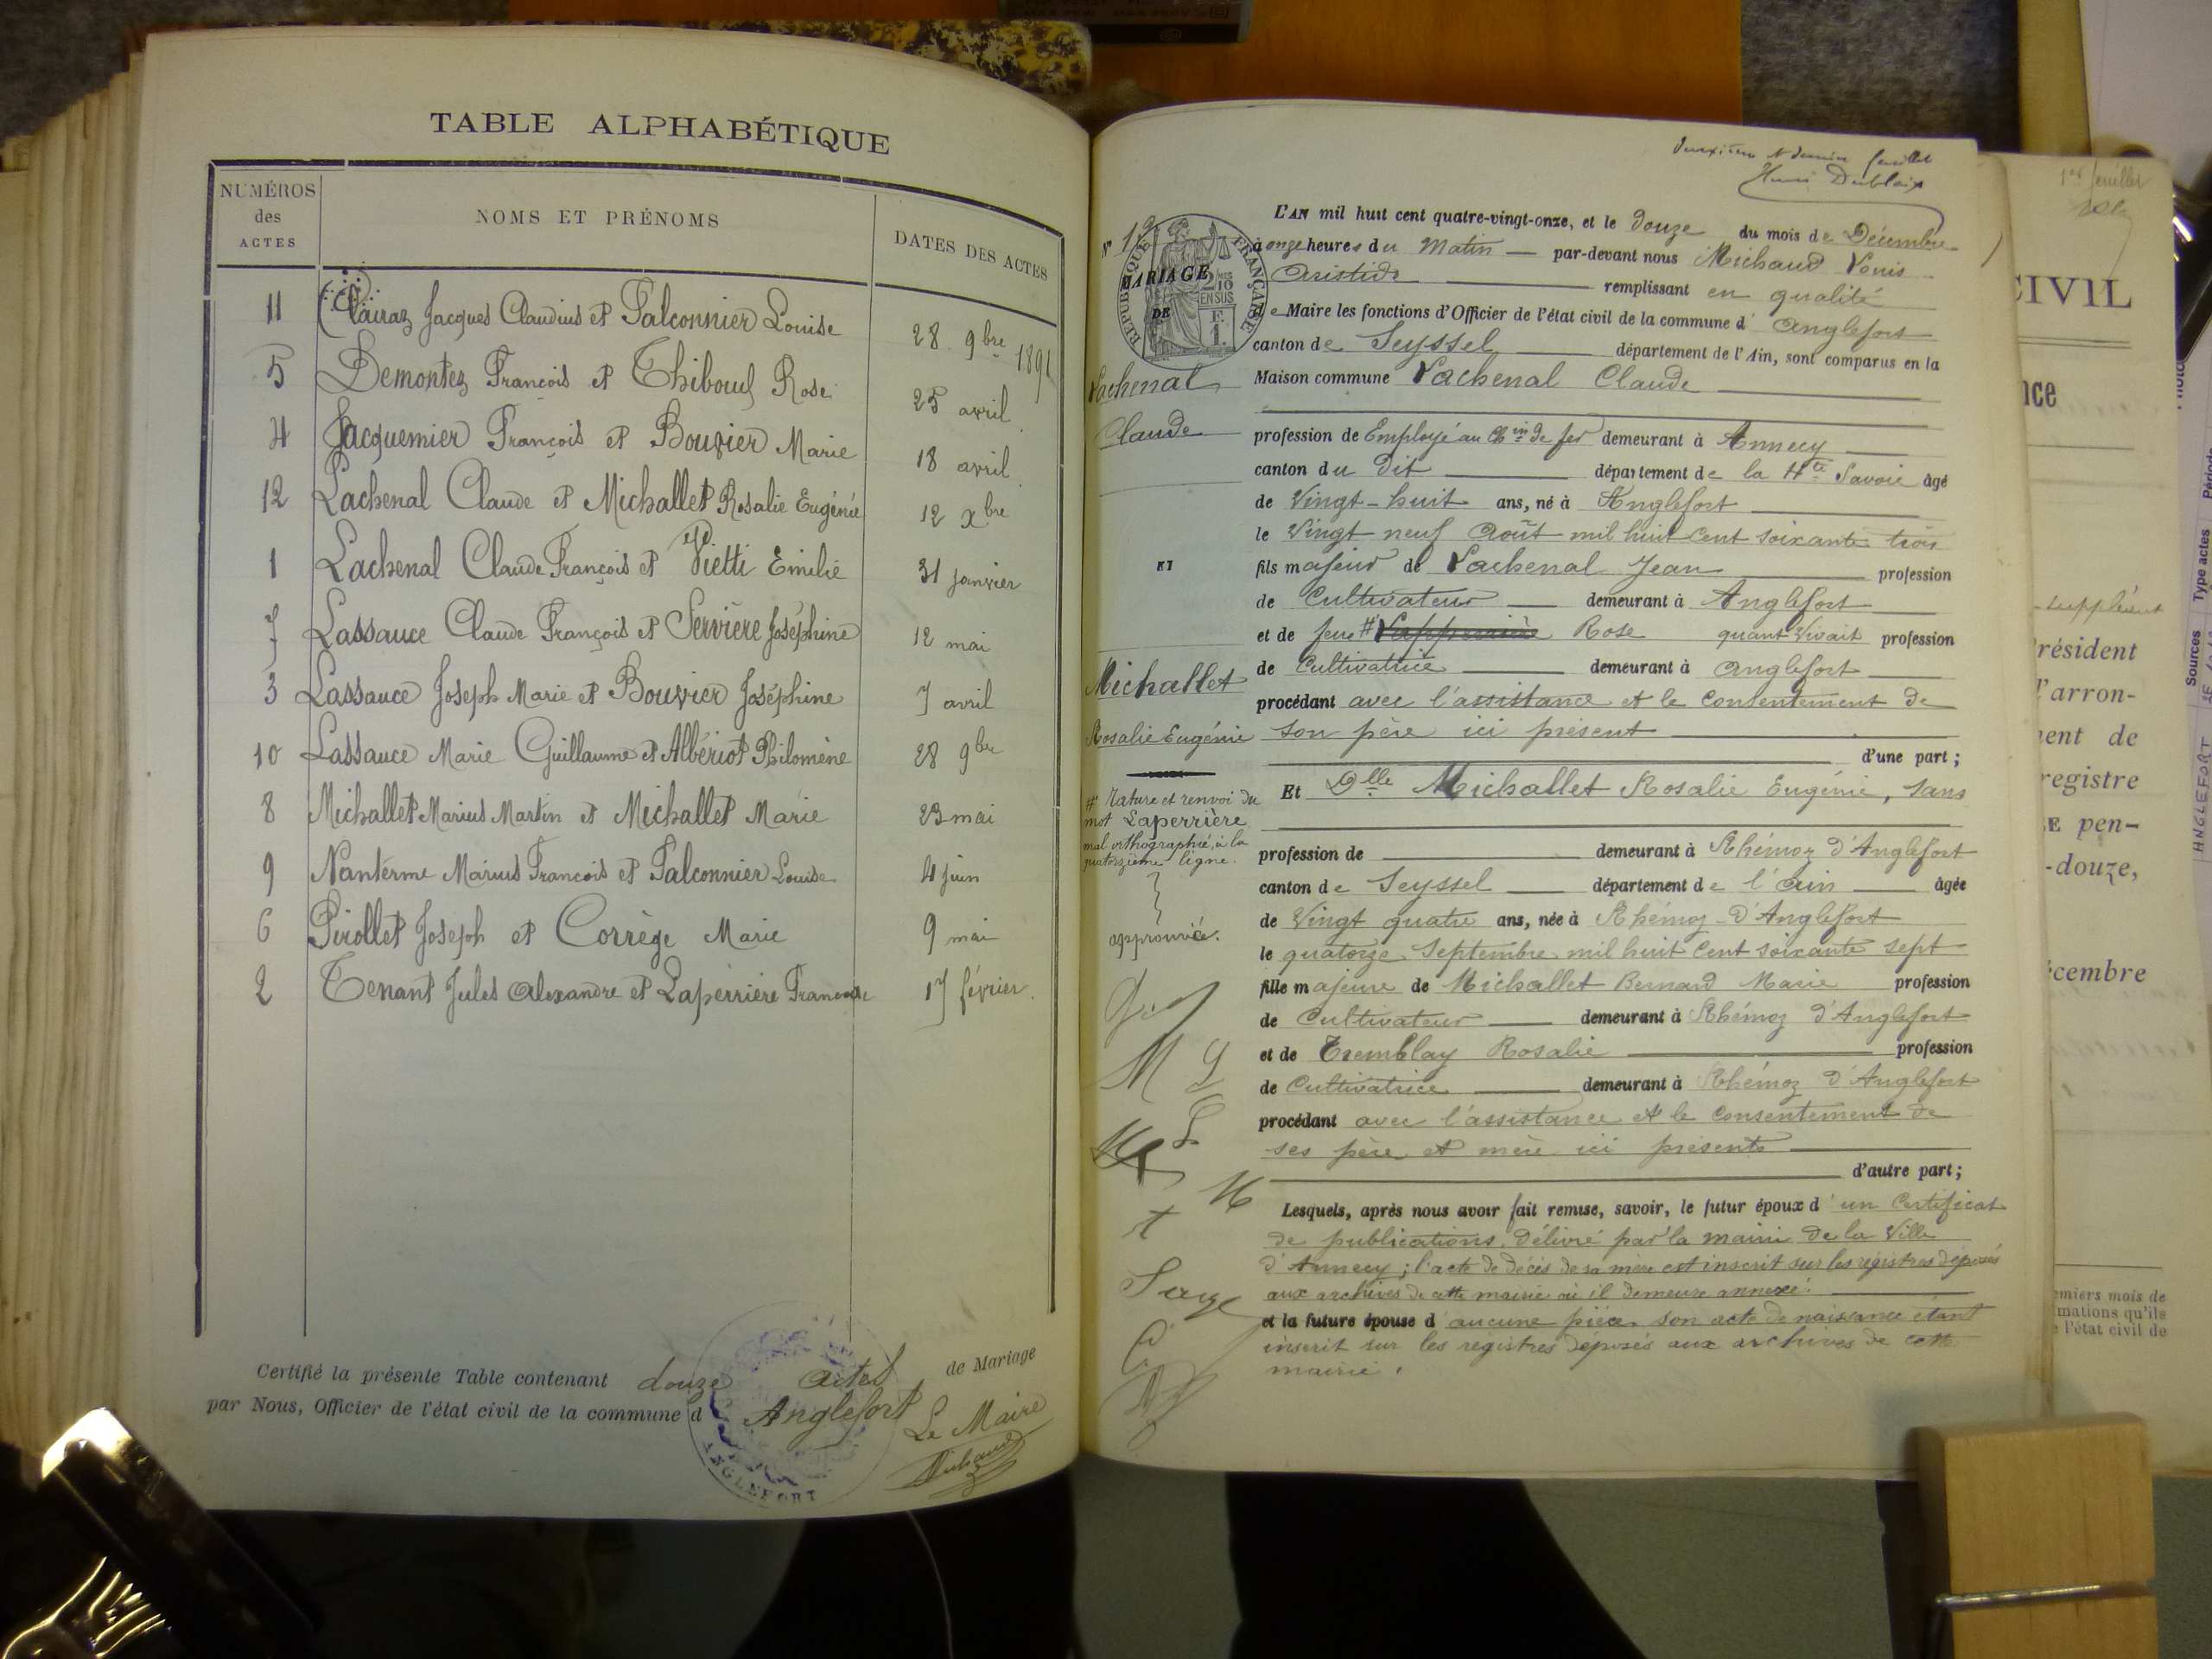 TABLE ALPHABÉTIQUE
NUMÉROS des ACTES
NOMS ET PRÉNOMS
DATES DES ACTES
11 Clairaz Jacques Claudius et Falconnier Louise 28 9bre 1891
5 Demontez François et Thiboud Rose 25 avril
4 Jacquemier François et Bouvier Marie 18 avril
12 Lachenal Claude et Michallet Rosalie Eugénie 12 Xbre
1 Lachenal Claude François et Vietti Emilie 31 janvier
7 Lassauce Claude François et Servière Joséphine 12 mai
3 Lassauce Joseph Marie et Bouvier Joséphine 7 avril
10 Lassauce Marie Guillaume et Albériot Philomène 28 9bre
8 Michallet Marius Martin et Michallet Marie 23 mai
9 Nanterme Marius François et Falconnier Louise 4 juin
6 Pirollet Joseph et Corrège Marie 9 mai
2 Tenant Jules Alexandre et Laperrière Francoise 17 février
Certifié la présente Table contenant douze actes de Mariage
par Nous, Officier de l'état civil de la commune d Anglefort Le Maire
Michaud
ANGLEFORT
deuxième et dernier feuillet
Henri Dubloix
N° 12
RÉPUBLIQUE FRANÇAISE
2/10 EN SUS
F. 1.
MARIAGE
DE
Lachenal
Claude
ET
Michallet
Rosalie Eugénie
# Rature et renvoi du
mot Laperrière
mal orthographié, à la
quatorzième ligne.
approuvée.
L'AN mil huit cent quatre-vingt-onze, et le douze du mois de Décembre
à onze heures du Matin par-devant nous Michaud Vonis
Aristide remplissant en qualité
de Maire les fonctions d'Officier de l'état civil de la commune d' Anglefort
canton de Seyssel département de l'Ain, sont comparus en la
Maison commune Lachenal Claude
profession de Employé au Chin de fer demeurant à Annecy
canton du dit département de la Hte Savoie âgé
de Vingt-huit ans, né à Anglefort
le Vingt neuf Août mil huit cent soixante trois
fils majeur de Lachenal Jean profession
de Cultivateur demeurant à Anglefort
et de feue # Rose quant vivait profession
de Cultivatrice demeurant à Anglefort
procédant avec l'assistance et le consentement de
son père ici présent
d'une part ;
Et Dlle Michallet Rosalie Eugénie, sans
profession de demeurant à Rhémoz d'Anglefort
canton de Seyssel département de l'Ain âgée
de Vingt quatre ans, née à Rhémoz d'Anglefort
le quatorze Septembre mil huit cent soixante sept
fille majeure de Michallet Bernard Marie profession
de Cultivateur demeurant à Rhémoz d'Anglefort
et de Tremblay Rosalie profession
de Cultivatrice demeurant à Rhémoz d'Anglefort
procédant avec l'assistance et le consentement de
ses père et mère ici présents
d'autre part ;
Lesquels, après nous avoir fait remise, savoir, le futur époux d'un Certificat
de publications délivré par la mairie de la Ville
d'Annecy ; l'acte de décès de sa mère est inscrit sur les régistres déposés
aux archives de cette mairie où il demeure annexé.
et la future épouse d'aucune pièce son acte de naissance étant
inscrit sur les régistres déposés aux archives de cette
mairie.
1er feuillet
CIVIL
nce
suppléant
résident
l'arron-
ment de
registre
pen-
-douze,
écembre
emiers mois de
mations qu'ils
l'état civil de
Sources Type actes Période
ANGLEFORT